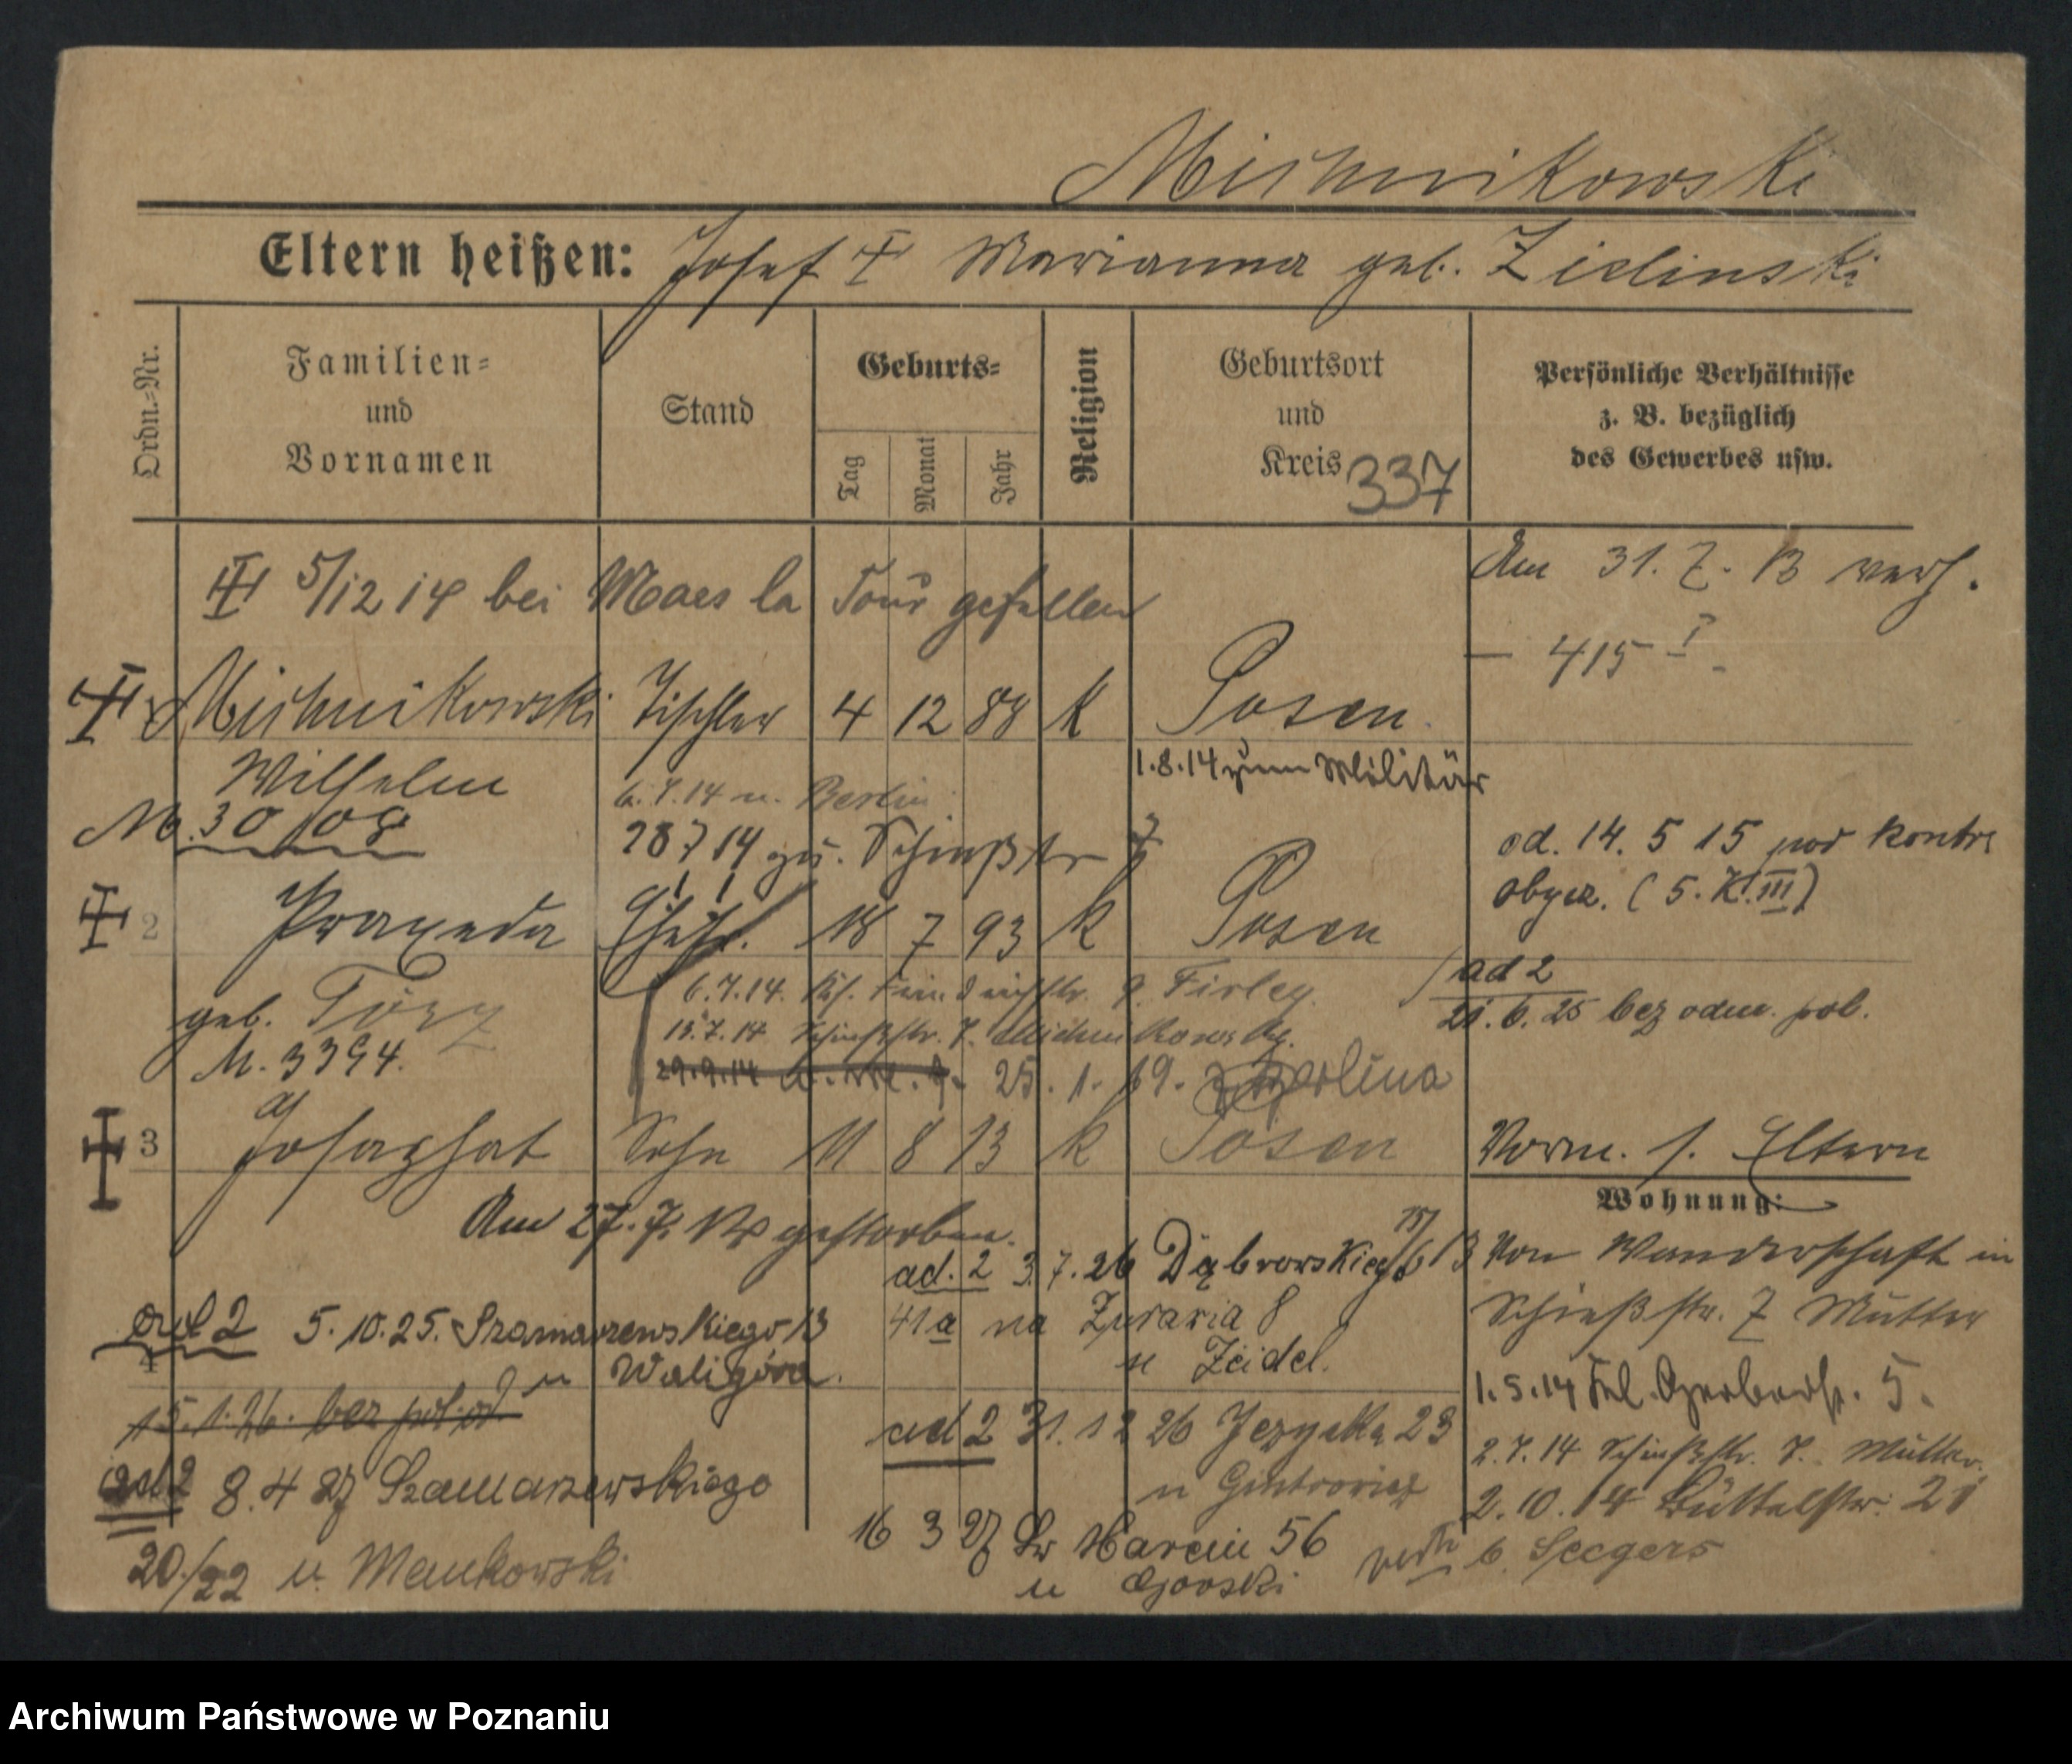 Michnikowski
Eltern heißen: Josef † Marianna geb. Zielinski
Ordn.-Nr.
Familien-
und
Vornamen
Stand
Geburts-
Tag
Monat
Jahr
Religion
Geburtsort
und
Kreis
337
Persönliche Verhältnisse
z. B. bezüglich
des Gewerbes usw.
5/12 14 bei Maes la Tour gefallen
Am 31. 7. 13 verh.
415
Michnikowski Tischler 4 12 88 k Posen
Wilhelm
1.8.14 zum Militär
6.7.14 n. Berlin
M. 30/08
28 7 14 zu. Schießstr 7
od. 14. 5 15 pod kontr.
obyez. (5. K. III)
2 Praxeda Ehefr. 18 7 93 k Posen
geb.
6.7.14. 9. Firley.
ad 2
21.6.25 bez odm. pol.
13.7.14 Schießstr. 7. Michnikowski.
M. 3394.
29.9.14 25. 1. 19. Berlina
3 Josaphat Sohn 11 8 13 k Posen
Vorm. s. Eltern
Wohnung:
Am 27. 7. gestorben.
ad. 2 3.7.26 Dąbrowskiego
41a na Żurawia 8
u Zeidel.
Von Wanderschaft in
Schießstr. 7 Mutter
ad 2 5.10.25. Szamarzewskiego 13
u Waligóra.
4
15.1.26. bez pol. od.
1.5.14 5.
ad 2 31. 12 26 Jeżycka 23
u
2.7.14 Schießstr. 7. Mutter.
ad 2 8.4 27 Szamarzewskiego
20/22 u. Mankowski
2.10.14 Büttelstr. 21
b. Seegers
16 3 27 Św Marcin 56
u
Archiwum Państwowe w Poznaniu